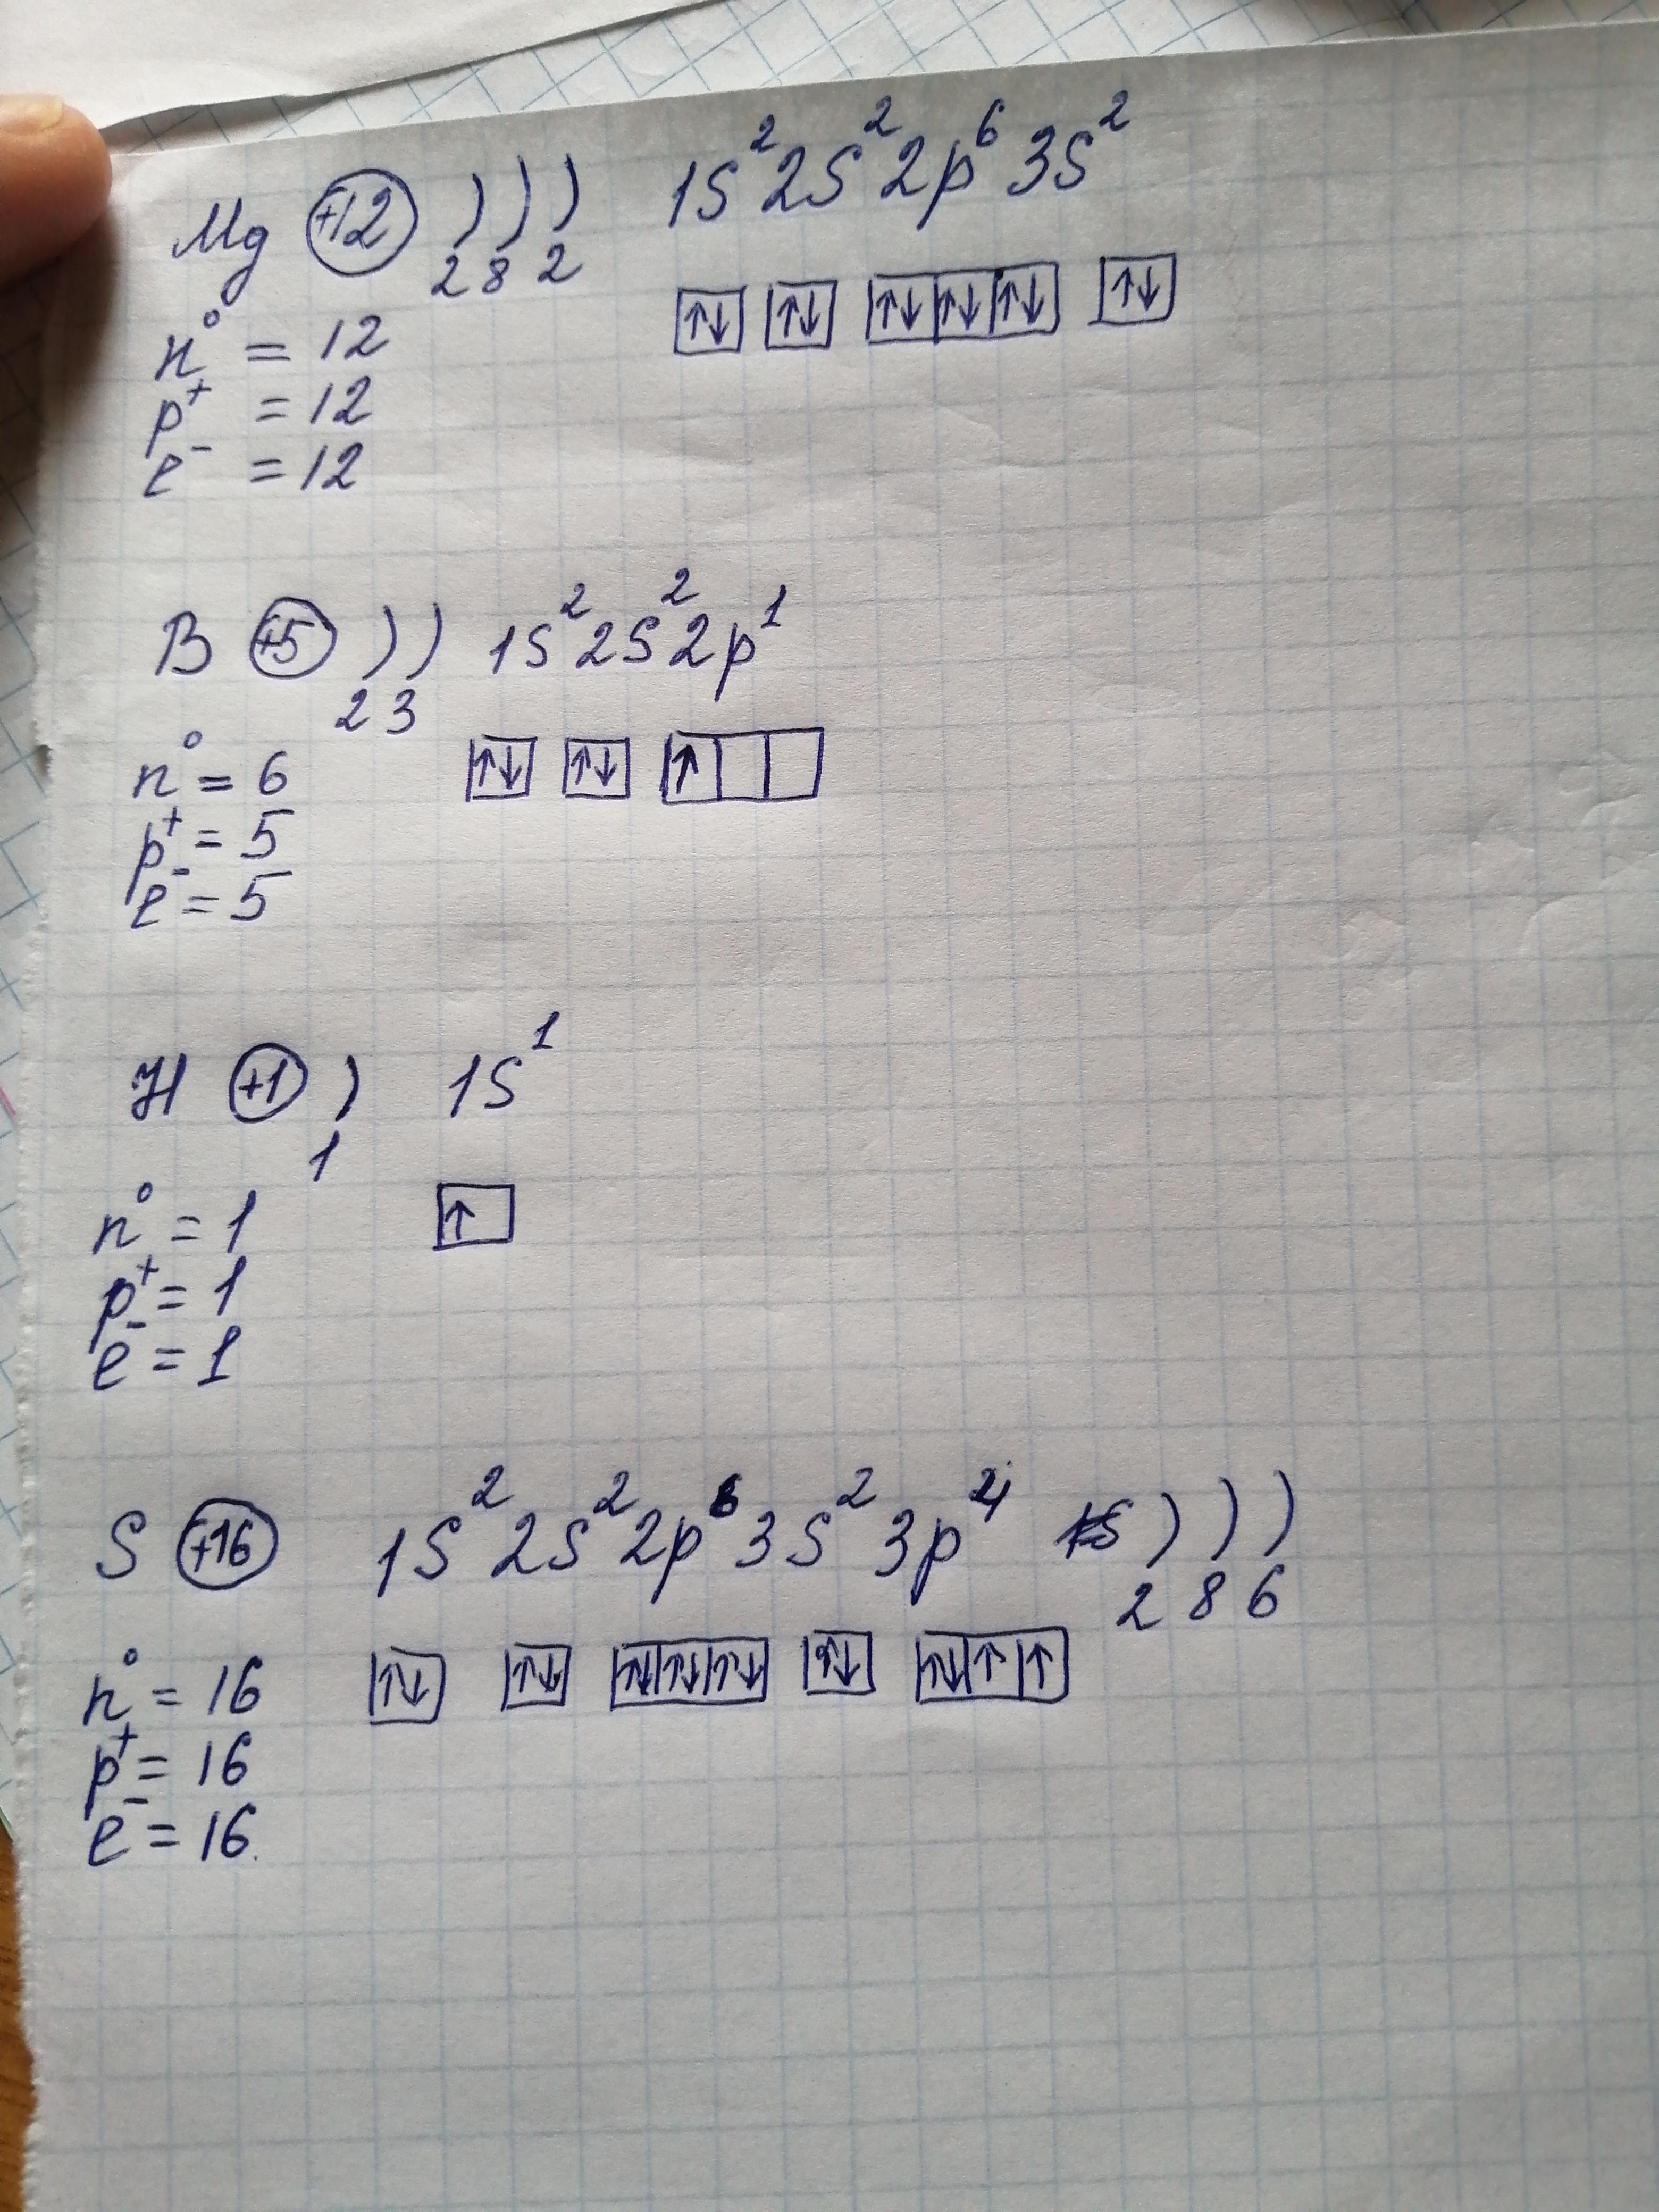 Mg +12 ) ) ) 1s² 2s² 2p⁶ 3s²
2 8 2
↑↓ ↑↓ ↑↓ ↑↓ ↑↓ ↑↓
n⁰ = 12
p⁺ = 12
e⁻ = 12
B +5 ) ) 1s² 2s² 2p¹
2 3
↑↓ ↑↓ ↑
n⁰ = 6
p⁺ = 5
e⁻ = 5
H +1 ) 1s¹
1
↑
n⁰ = 1
p⁺ = 1
e⁻ = 1
S +16 1s² 2s² 2p⁶ 3s² 3p⁴ ) ) )
2 8 6
↑↓ ↑↓ ↑↓ ↑↓ ↑↓ ↑↓ ↑↓ ↑ ↑
n⁰ = 16
p⁺ = 16
e⁻ = 16.